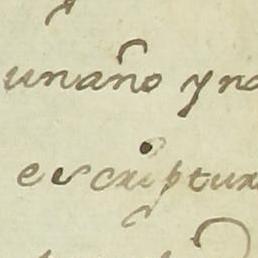 un año y no
escriptura